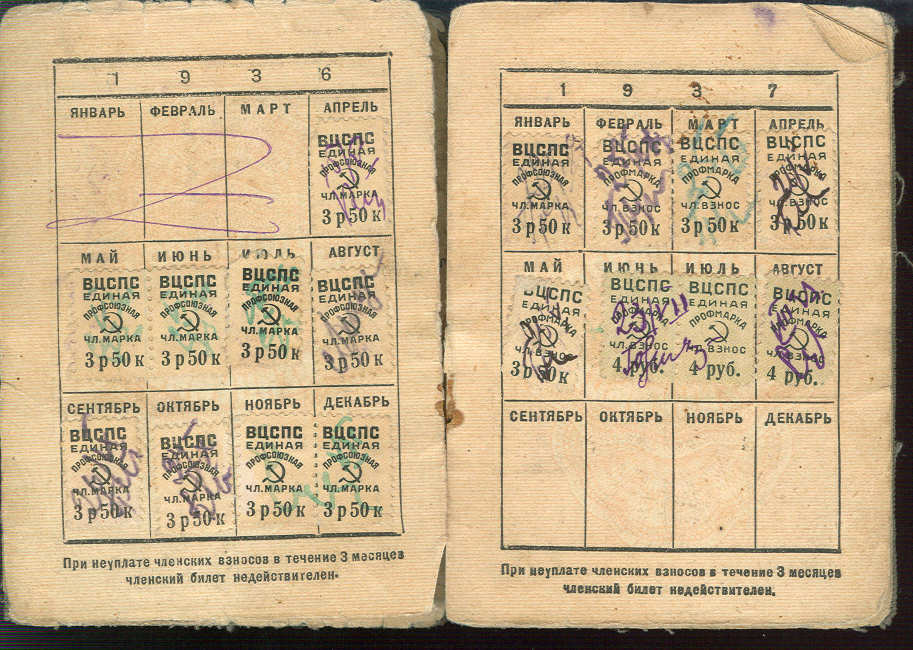 1 9 3 6
ЯНВАРЬ ФЕВРАЛЬ МАРТ АПРЕЛЬ
ВЦСПС
ЕДИНАЯ
ПРОФСОЮЗНАЯ
ЧЛ. МАРКА
3 р 50 к
МАЙ ИЮНЬ ИЮЛЬ АВГУСТ
ВЦСПС ВЦСПС ВЦСПС ВЦСПС
ЕДИНАЯ ЕДИНАЯ ЕДИНАЯ ЕДИНАЯ
ПРОФСОЮЗНАЯ ПРОФСОЮЗНАЯ ПРОФСОЮЗНАЯ ПРОФСОЮЗНАЯ
ЧЛ. МАРКА ЧЛ. МАРКА ЧЛ. МАРКА ЧЛ. МАРКА
3 р 50 к 3 р 50 к 3 р 50 к 3 р 50 к
СЕНТЯБРЬ ОКТЯБРЬ НОЯБРЬ ДЕКАБРЬ
ВЦСПС ВЦСПС ВЦСПС ВЦСПС
ЕДИНАЯ ЕДИНАЯ ЕДИНАЯ ЕДИНАЯ
ПРОФСОЮЗНАЯ ПРОФСОЮЗНАЯ ПРОФСОЮЗНАЯ ПРОФСОЮЗНАЯ
ЧЛ. МАРКА ЧЛ. МАРКА ЧЛ. МАРКА ЧЛ. МАРКА
3 р 50 к 3 р 50 к 3 р 50 к 3 р 50 к
При неуплате членских взносов в течение 3 месяцев
членский билет недействителен.
1 9 3 7
ЯНВАРЬ ФЕВРАЛЬ МАРТ АПРЕЛЬ
ВЦСПС ВЦСПС ВЦСПС ВЦСПС
ЕДИНАЯ ЕДИНАЯ ЕДИНАЯ ЕДИНАЯ
ПРОФСОЮЗНАЯ ПРОФМАРКА ПРОФМАРКА ПРОФМАРКА
ЧЛ. МАРКА ЧЛ. ВЗНОС ЧЛ. ВЗНОС ЧЛ. ВЗНОС
3 р 50 к 3 р 50 к 3 р 50 к 3 р 50 к
МАЙ ИЮНЬ ИЮЛЬ АВГУСТ
ВЦСПС ВЦСПС ВЦСПС ВЦСПС
ЕДИНАЯ ЕДИНАЯ ЕДИНАЯ ЕДИНАЯ
ПРОФМАРКА ПРОФМАРКА ПРОФМАРКА ПРОФМАРКА
ЧЛ. ВЗНОС ЧЛ. ВЗНОС ЧЛ. ВЗНОС ЧЛ. ВЗНОС
3 р 50 к 4 руб. 4 руб. 4 руб.
СЕНТЯБРЬ ОКТЯБРЬ НОЯБРЬ ДЕКАБРЬ
При неуплате членских взносов в течение 3 месяцев
членский билет недействителен.